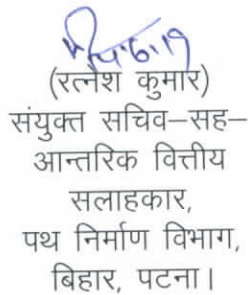 (रत्नेश कुमार)
संयुक्त सचिव–सह–
आन्तरिक वित्तीय
सलाहकार,
पथ निर्माण विभाग,
बिहार, पटना।